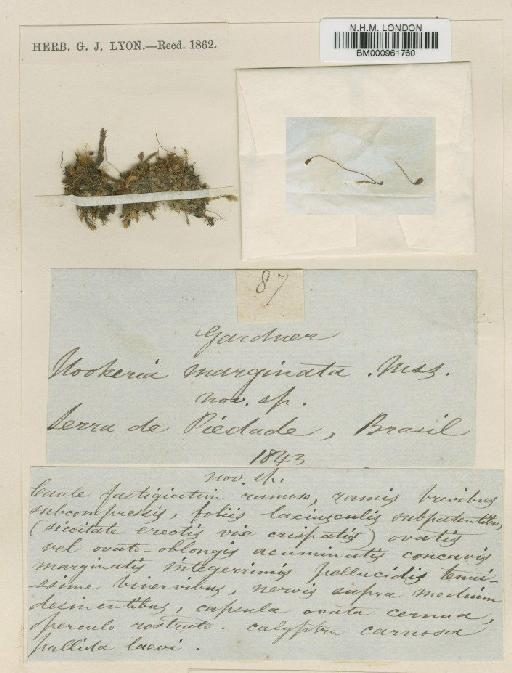 HERB. G. J. LYON.—Recd. 1862.
N.H.M. LONDON
BM000961760
87
Gardner
Hookeria marginata. Mss.
nov. sp.
Serra de Piedade, Brasil
1843
nov. sp.
Caule fastigiatim ramoso, ramis brevibus
subcompressis, foliis laxiusculis subpatentibus,
(siccitate erectis vix crispatis) ovatis
vel ovato-oblongis acuminatis concavis
marginatis integerrimis pellucidis tenuis-
sime binervibus, nervis supra medium
desinentibus, capsula ovata cernua,
operculo rostrato calyptra carnosa
pallida laevi.